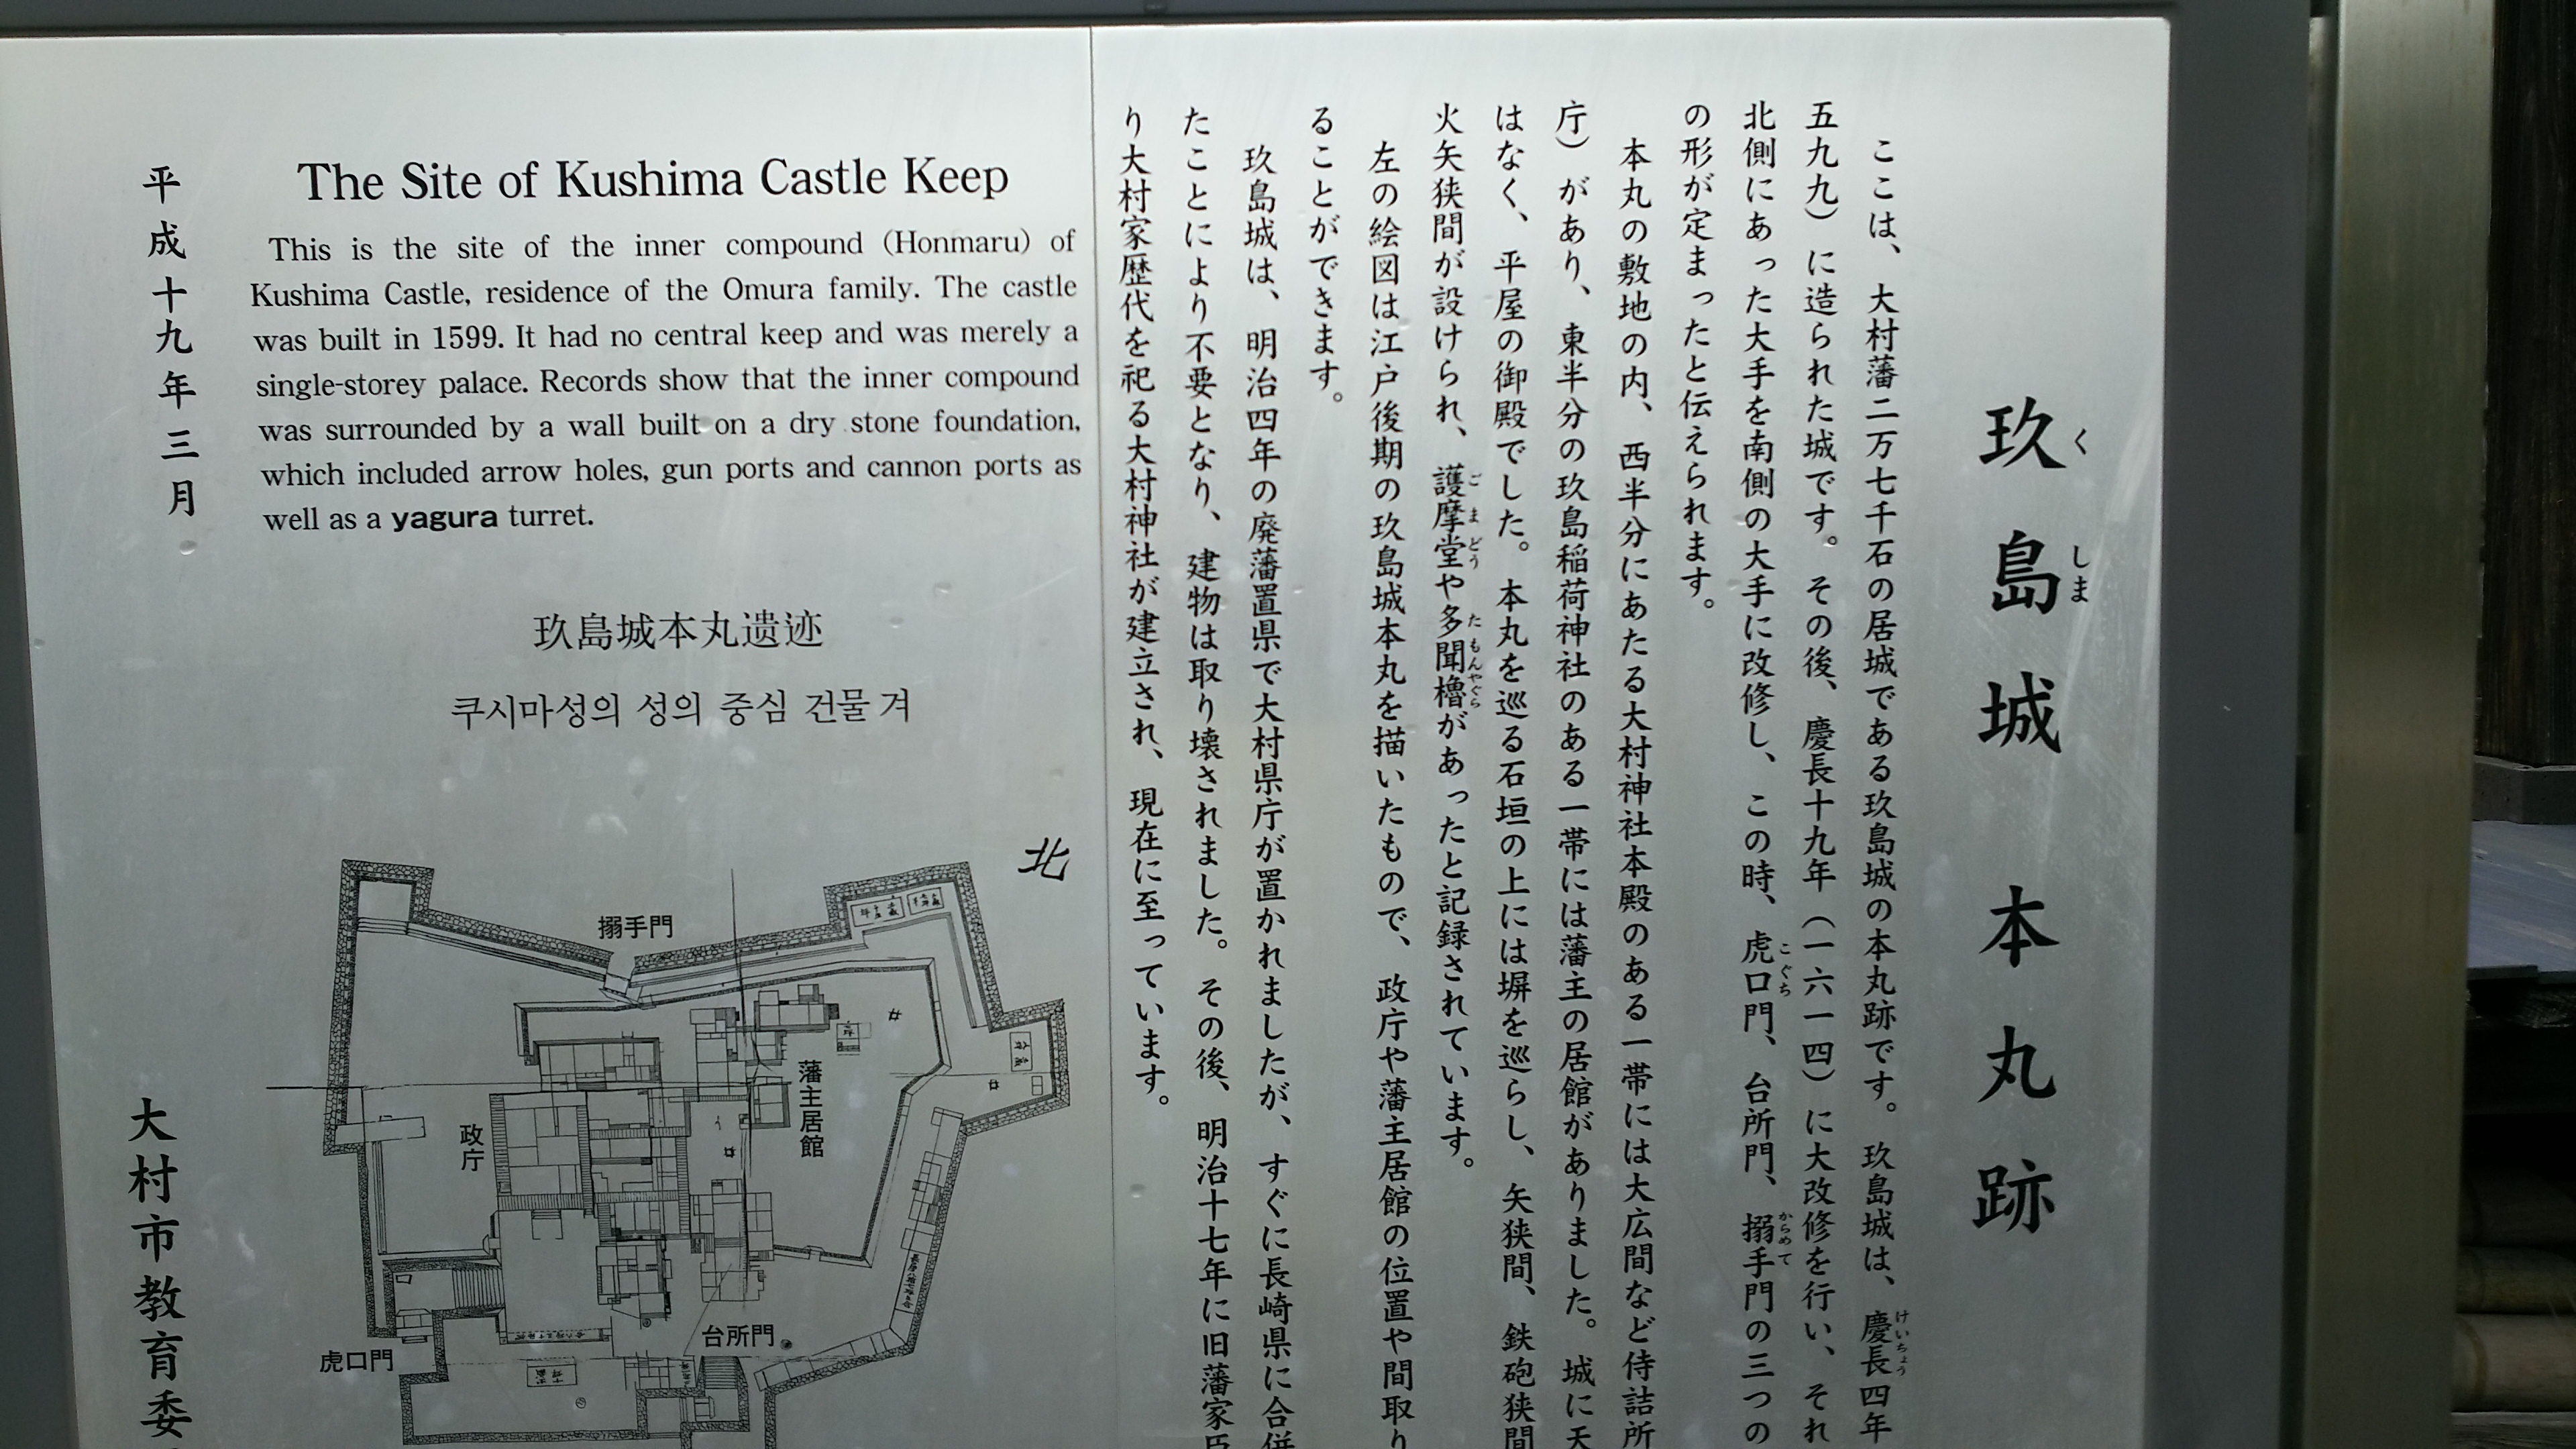 玖島城本丸跡
くしま
ここは、大村藩二万七千石の居城である玖島城の本丸跡です。玖島城は、慶長四年
けいちょう
五九九）に造られた城です。その後、慶長十九年（一六一四）に大改修を行い、それ
北側にあった大手を南側の大手に改修し、この時、虎口門、台所門、搦手門の三つの
こぐち からめて
の形が定まったと伝えられます。
本丸の敷地の内、西半分にあたる大村神社本殿のある一帯には大広間など侍詰所
庁）があり、東半分の玖島稲荷神社のある一帯には藩主の居館がありました。城に天
はなく、平屋の御殿でした。本丸を巡る石垣の上には塀を巡らし、矢狭間、鉄砲狭間
火矢狭間が設けられ、護摩堂や多聞櫓があったと記録されています。
ごまどう たもんやぐら
左の絵図は江戸後期の玖島城本丸を描いたもので、政庁や藩主居館の位置や間取り
ることができます。
玖島城は、明治四年の廃藩置県で大村県庁が置かれましたが、すぐに長崎県に合併
たことにより不要となり、建物は取り壊されました。その後、明治十七年に旧藩家臣
り大村家歴代を祀る大村神社が建立され、現在に至っています。
The Site of Kushima Castle Keep
This is the site of the inner compound (Honmaru) of
Kushima Castle, residence of the Omura family. The castle
was built in 1599. It had no central keep and was merely a
single-storey palace. Records show that the inner compound
was surrounded by a wall built on a dry stone foundation,
which included arrow holes, gun ports and cannon ports as
well as a yagura turret.
玖島城本丸遗迹
쿠시마성의 성의 중심 건물 겨
北
搦手門
藩主居館
政庁
台所門
虎口門
平成十九年三月
大村市教育委